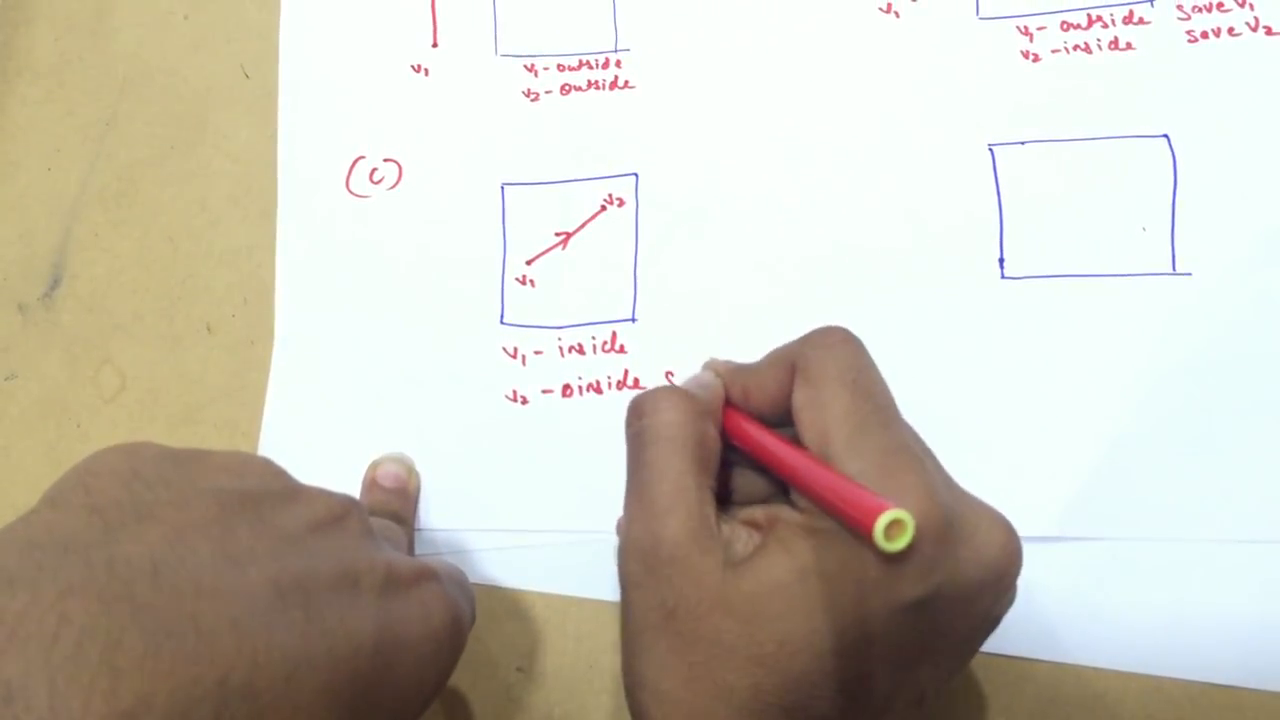 v₁
v₁ - outside
v₂ - outside
v₁
v₁ - outside
v₂ - inside
save v₁
save v₂
(c)
v₂
v₁
v₁ - inside
v₂ - inside